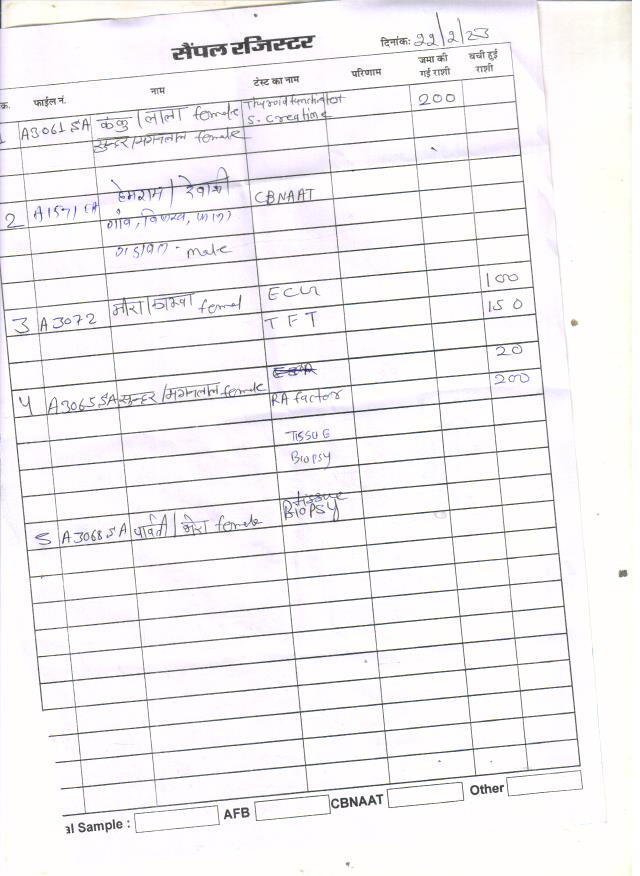 सैंपल रजिस्टर
दिनांकः 22/2/23
क. फाईल नं. नाम टेस्ट का नाम परिणाम जमा की गई राशी बची हुई राशी
1 A3061SA कंकु / लाला female Thyroid function 200
सुन्दर/मगनलाल female S. Creatine
2 A1571 SA हेमराम / देवाजी CBNAAT
गांव,
male
3 A3072 मीरा / female ECG 100
TFT 150
20
4 A3065SA सुन्दर/मगनलाल female RA factor 200
TISSUE
Biopsy
5 A3068SA पार्वती / female Tissue
BIOPSY
al Sample : AFB CBNAAT Other